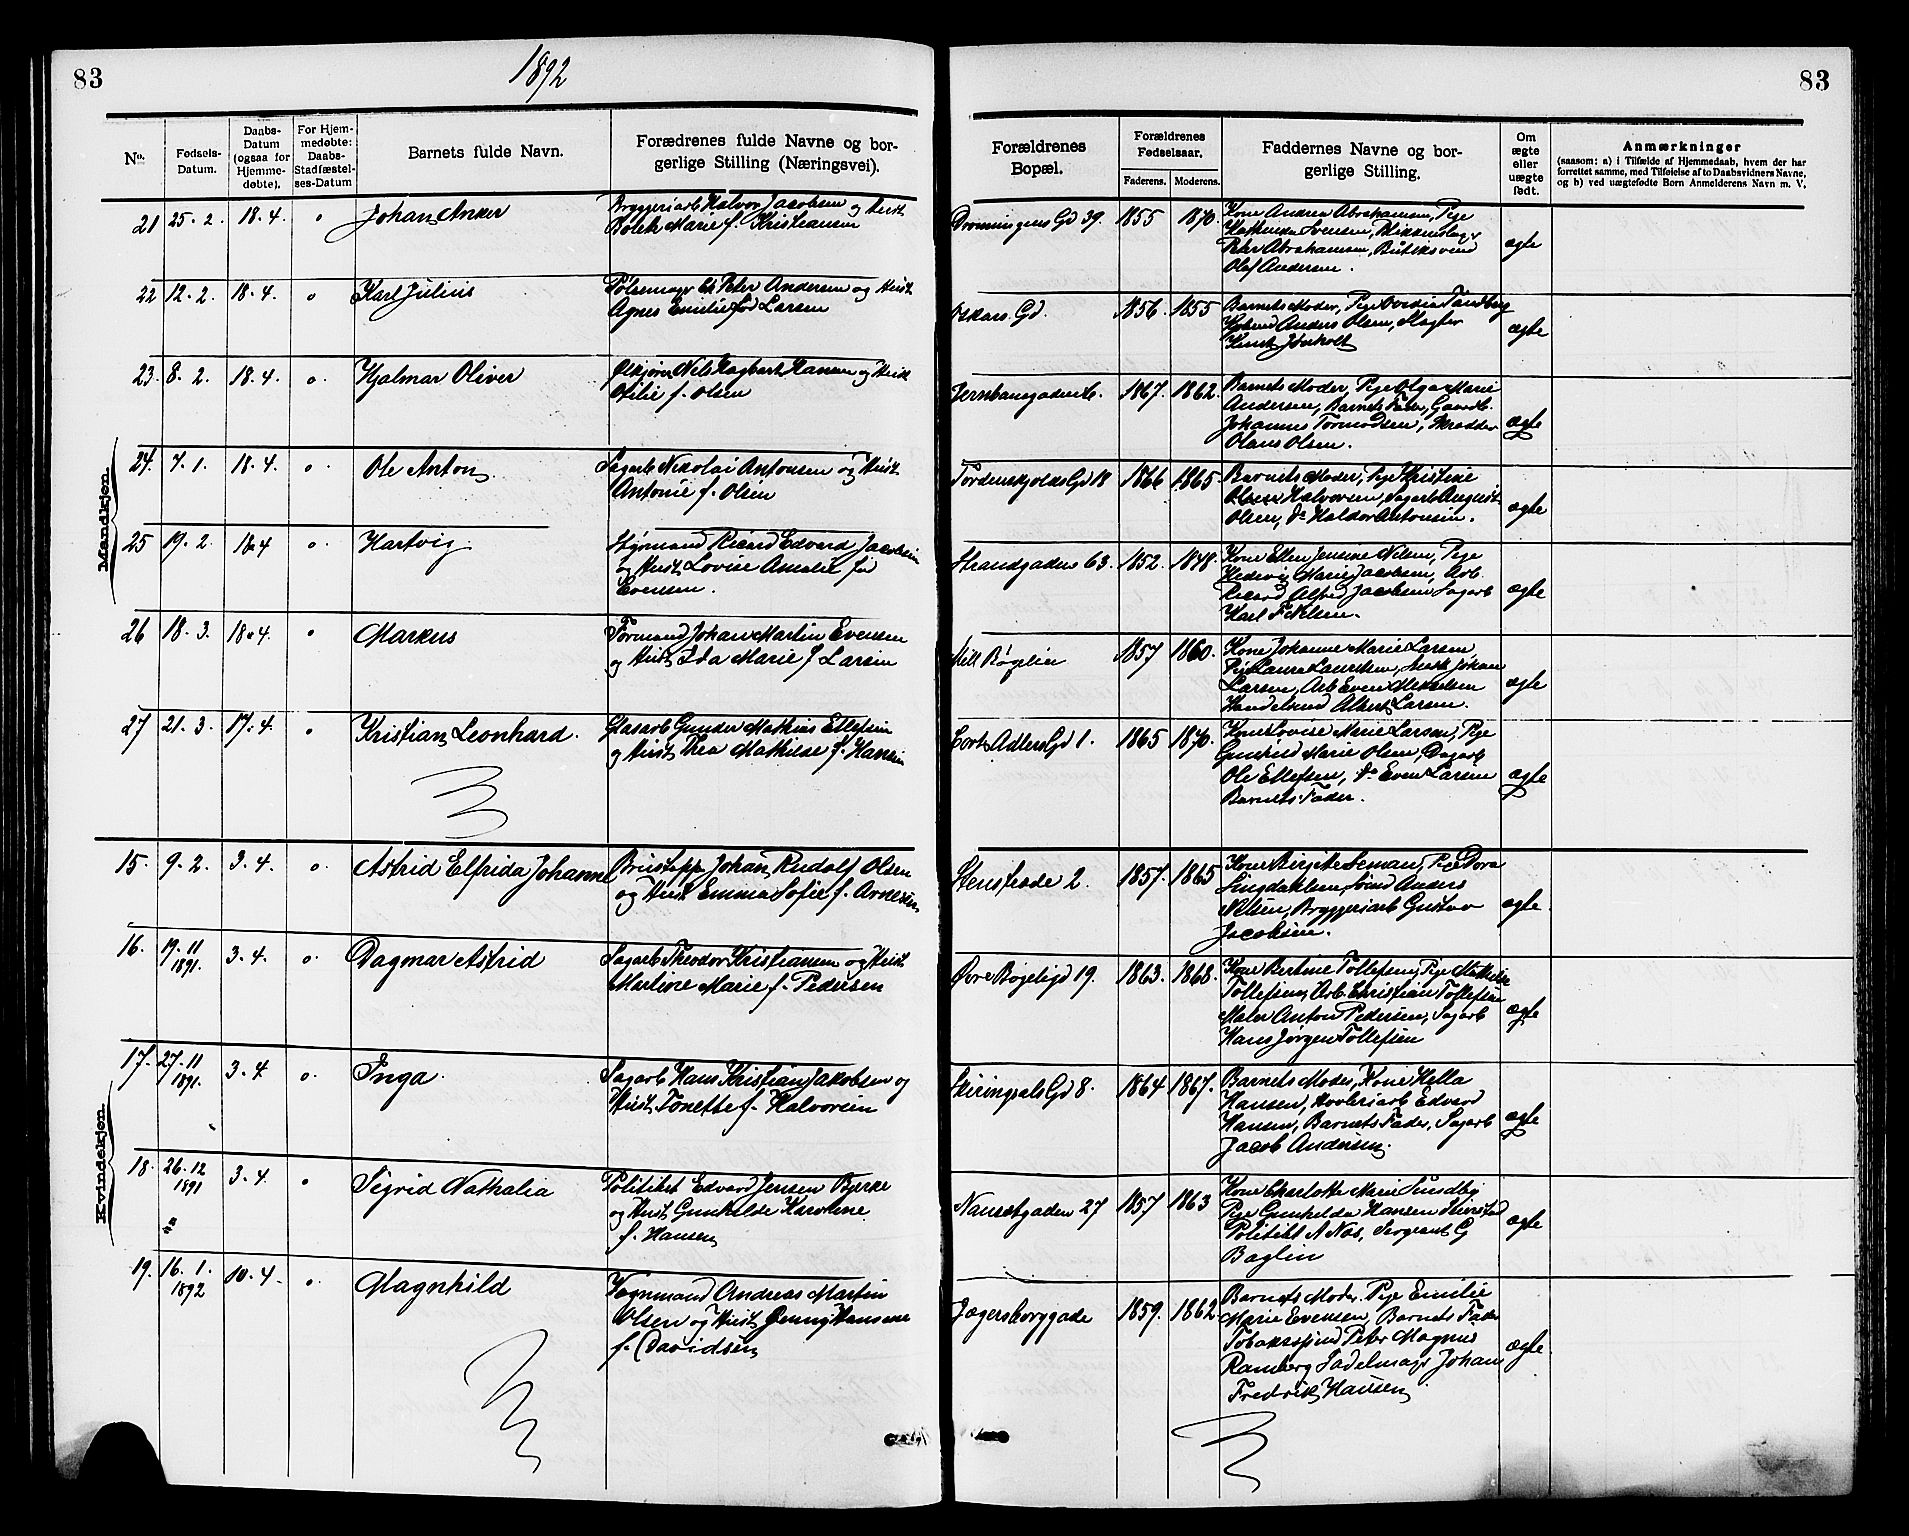 83
1892
83
No.
Fødsels-
Datum.
Daabs-
Datum
(ogsaa for
Hjemme-
døbte).
For Hjem-
medøbte:
Daabs-
Stadfæstel-
ses-Datum
Barnets fulde Navn.
Forædrenes fulde Navne og bor-
gerlige Stilling (Næringsvei).
Forældrenes
Bopæl.
Forældrenes
Fødselsaar.
Faderens.
Moderens.
Faddernes Navne og bor-
gerlige Stilling.
Om
ægte
eller
uægte
født.
Anmærkninger
(saasom: a) i Tilfælde af Hjemmedaab, hvem der har
forrettet samme, med Tilføielse af to Daabsvidners Navne,
og b) ved uægtefødte Børn Anmelderens Navn m. V.
Mandkjøn
21 25. 2. 18. 4. o Johan Anker
Bryggeriarb Halvor Jacobsen og Hust
Bolette Marie f. Kristiansen
Dronningens Gd 39. 1855 1870.
Kone Andrea Abrahamsen, Pige
Kathinka Svensen, Blikkenslag
Peter Abrahamsen, Butiksvend
Olaf Andersen.
ægte
22 12. 2. 18. 4. o Karl Julius
Pølsemager Peter Andersen og Hust
Agnes Emilie fød Larsen
Oskars Gd. 1856. 1855
Barnets Moder, Pige Ovedia Tandberg
Anders Olsen, Slagter
Knut
ægte
23. 8. 2. 18. 4. o. Hjalmar Oliver
Ølkjører Nils Hagbart Hansen og Hust
Otilie f. Olsen
Jernbanegaden 6. 1867. 1862.
Barnets Moder, Pige Olga Marie
Andersen, Barnets Fader, Gaardb.
Johannes Tormodsen, Skrædder
Olaus Olsen.
ægte
24. 7. 1. 18. 4. o. Ole Anton
Sagarb Nikolai Antonsen og Hust
Antonie f. Olsen
Tordenskjolds Gd 18 1866 1865.
Barnets Moder, Pige Kristine
Halvorsen, Sagarb August
Olsen, do Haldor Antonsen.
ægte
25 19. 2. 18. 4 o. Hartvig
Styrmand Ricard Edvard Jacobsen
og Hust Lovise Amalie fø
Evensen.
Strandgaden 63. 1852. 1848.
Kone Ellen Jensine Nilsen, Pige
Hedevig Marie Jacobsen, Arb.
Ricard Alfred Jacobsen Sagarb
Karl F Nilsen.
ægte
26 18. 3. 18. 4. o Markus
Formand Johan Martin Evensen
og Hust Ida Marie f Larsen
Mell Bøgelien 1857 1860.
Kone Johanne Marie Larsen,
Pige Laura Lauritsen, Johan
Larsen, Arb Even Mikkelsen
Handelsmd Albert Larsen.
ægte
27 21. 3. 17. 4. o Kristian Leonhard.
Glasarb Gunder Mathias Ellefsen
og Hust Thea Mathilde f. Hansen
Corts Adlers Gd 1. 1865 1870.
Kone Lovise Marie Larsen, Pige
Gunhild Marie Olsen, Dagarb
Ole Ellefsen, do Even Larsen
Barnets Fader.
ægte
Kvindekjøn
15. 9. 2. 3. 4. o. Astrid Elfrida Johanne
Brustapp Johan Rudolf Olsen
og Hust Emma Sofie f. Arnesen
Stenstrade 2. 1857. 1865
Kone Birgitte Seman, Pige Dora
Anders
Nilsen, Bryggeriarb Gustav
Jacobsen.
ægte
16. 19. 11 1891. 3. 4. o. Dagmar Astrid
Sagarb Theodor Kristiansen og Hust
Martine Marie f. Pedersen
Øvre Bøgeligd 19. 1863. 1868.
Kone Bertine Tollefsen, Pige Mathilde
Tollefsen, Arb. Christian Tollefsen
Maler Anton Pedersen, Sagarb
Hans Jørgen Tollefsen
ægte
17. 27. 11 1891. 3. 4 o. Inga.
Sagarb Hans Kristian Jakobsen og
Hust Tonette f. Halvorsen
Skiringsals Gd 8. 1864 1867.
Barnets Moder, Kone Hella
Hansen, Høvleriarb Edvard
Hansen, Barnets Fader, Sagarb
Jacob Andersen.
ægte
18. 26. 12 1891 3. 4. o Sigrid Nathalia
Politibet Edvard Jensen Bjerke
og Hust Gunhilde Karoline
f. Hansen
Nansetgaden 27 1857 1863
Kone Charlotte Marie Sundby
Pige Gunhilda Hansen
Politibt A Næs, Sergeant G
Baglin
ægte
19. 16. 1. 1892 10. 4. o Magnhild
Vognmand Andreas Martin
Olsen og Hust Jenny Hansine
f. Davidsen
Jægersborggade 1859. 1862
Barnets Moder. Pige Emilie
Marie Evensen, Barnets Fader
Tobaksspind Peter Magnus
Ramberg Sadelmagr Johan
Fredrik Hansen.
ægte